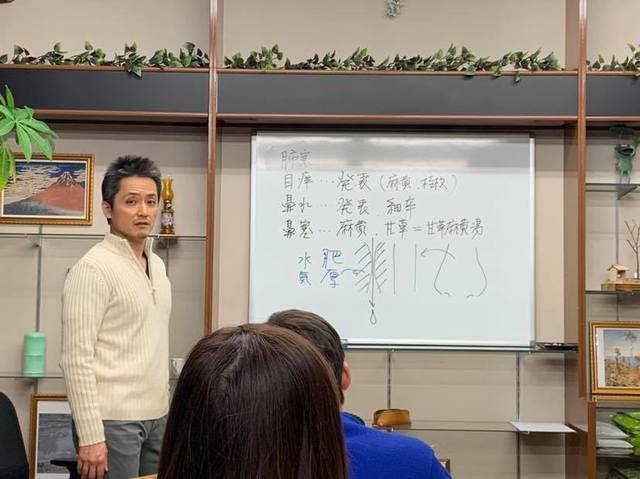 肺寒
目痒…発表（麻黄、桂枝）
鼻水…発表 細辛
鼻塞…麻黄、甘草＝甘草麻黄湯
水気 肥厚